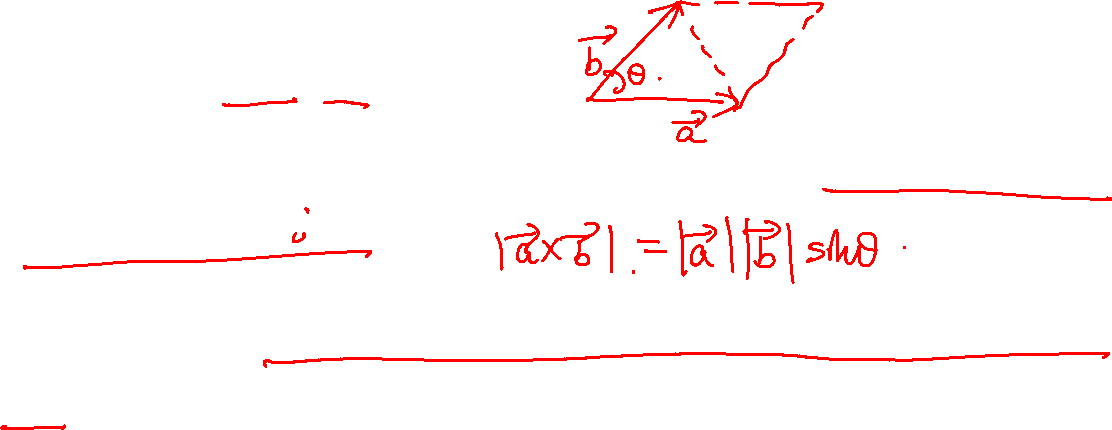 b⃗ θ
a⃗
|a⃗×b⃗| = |a⃗||b⃗| sinθ